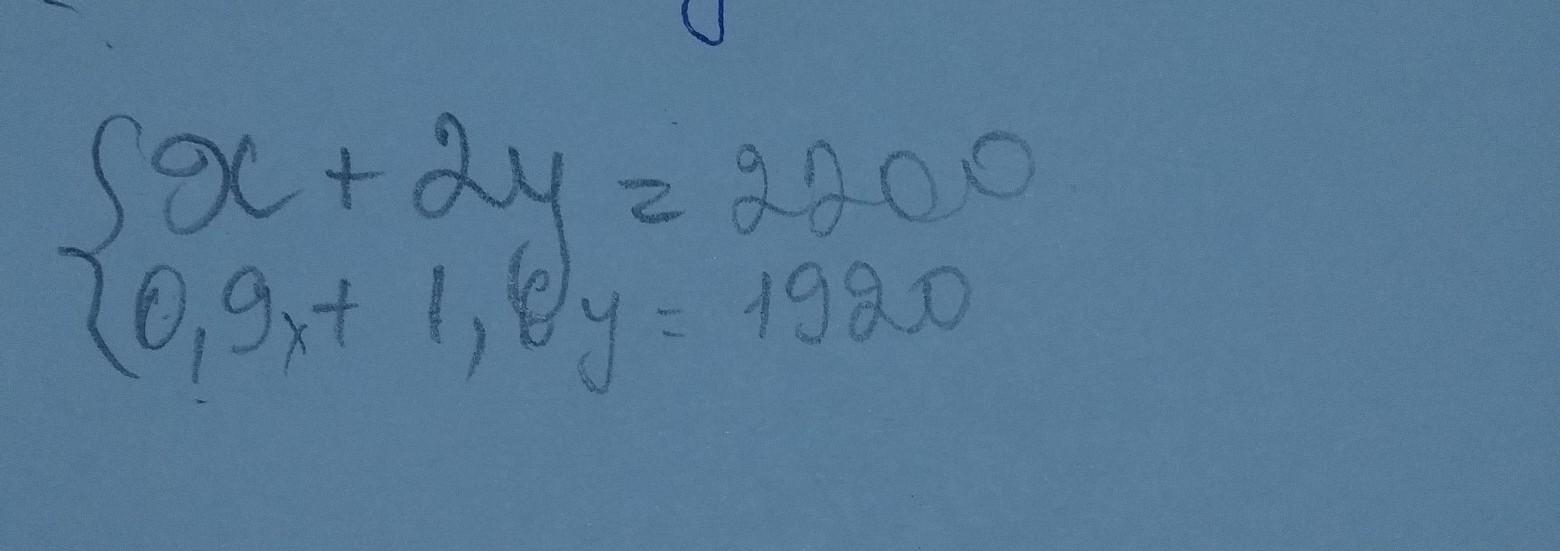 {x + 2y = 2200
{0,9x + 1,6y = 1920